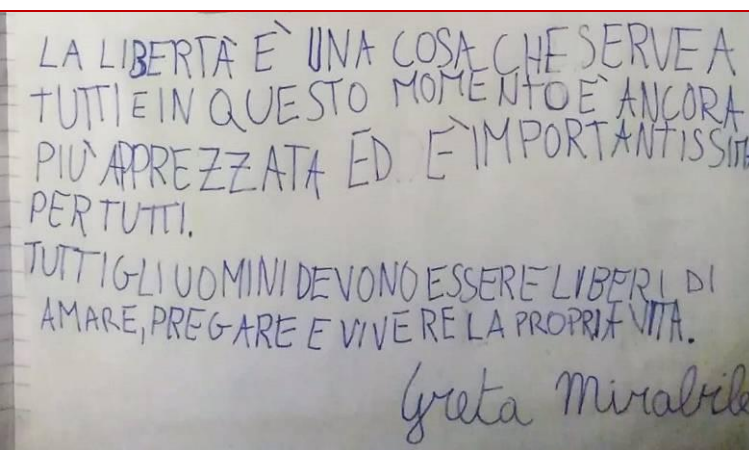 LA LIBERTÀ È UNA COSA CHE SERVE A
TUTTI E IN QUESTO MOMENTO È ANCORA
PIÙ APPREZZATA ED È IMPORTANTISSIMA
PER TUTTI.
TUTTI GLI UOMINI DEVONO ESSERE LIBERI DI
AMARE, PREGARE E VIVERE LA PROPRIA VITA.
Greta Mirabile